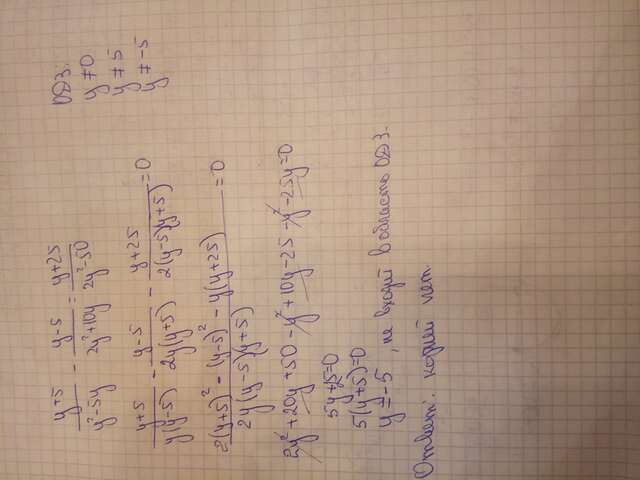 y+5/y²-5y - y-5/2y²+10y = y+25/2y²-50
ОДЗ:
y ≠ 0
y ≠ 5
y ≠ -5
y+5/y(y-5) - y-5/2y(y+5) - y+25/2(y-5)(y+5) = 0
2(y+5)² - (y-5)² - y(y+25)/2y(y-5)(y+5) = 0
2y²+20y+50-y²+10y-25-y²-25y=0
5y+25=0
5(y+5)=0
y=-5, не входит в область ОДЗ.
Ответ: корней нет